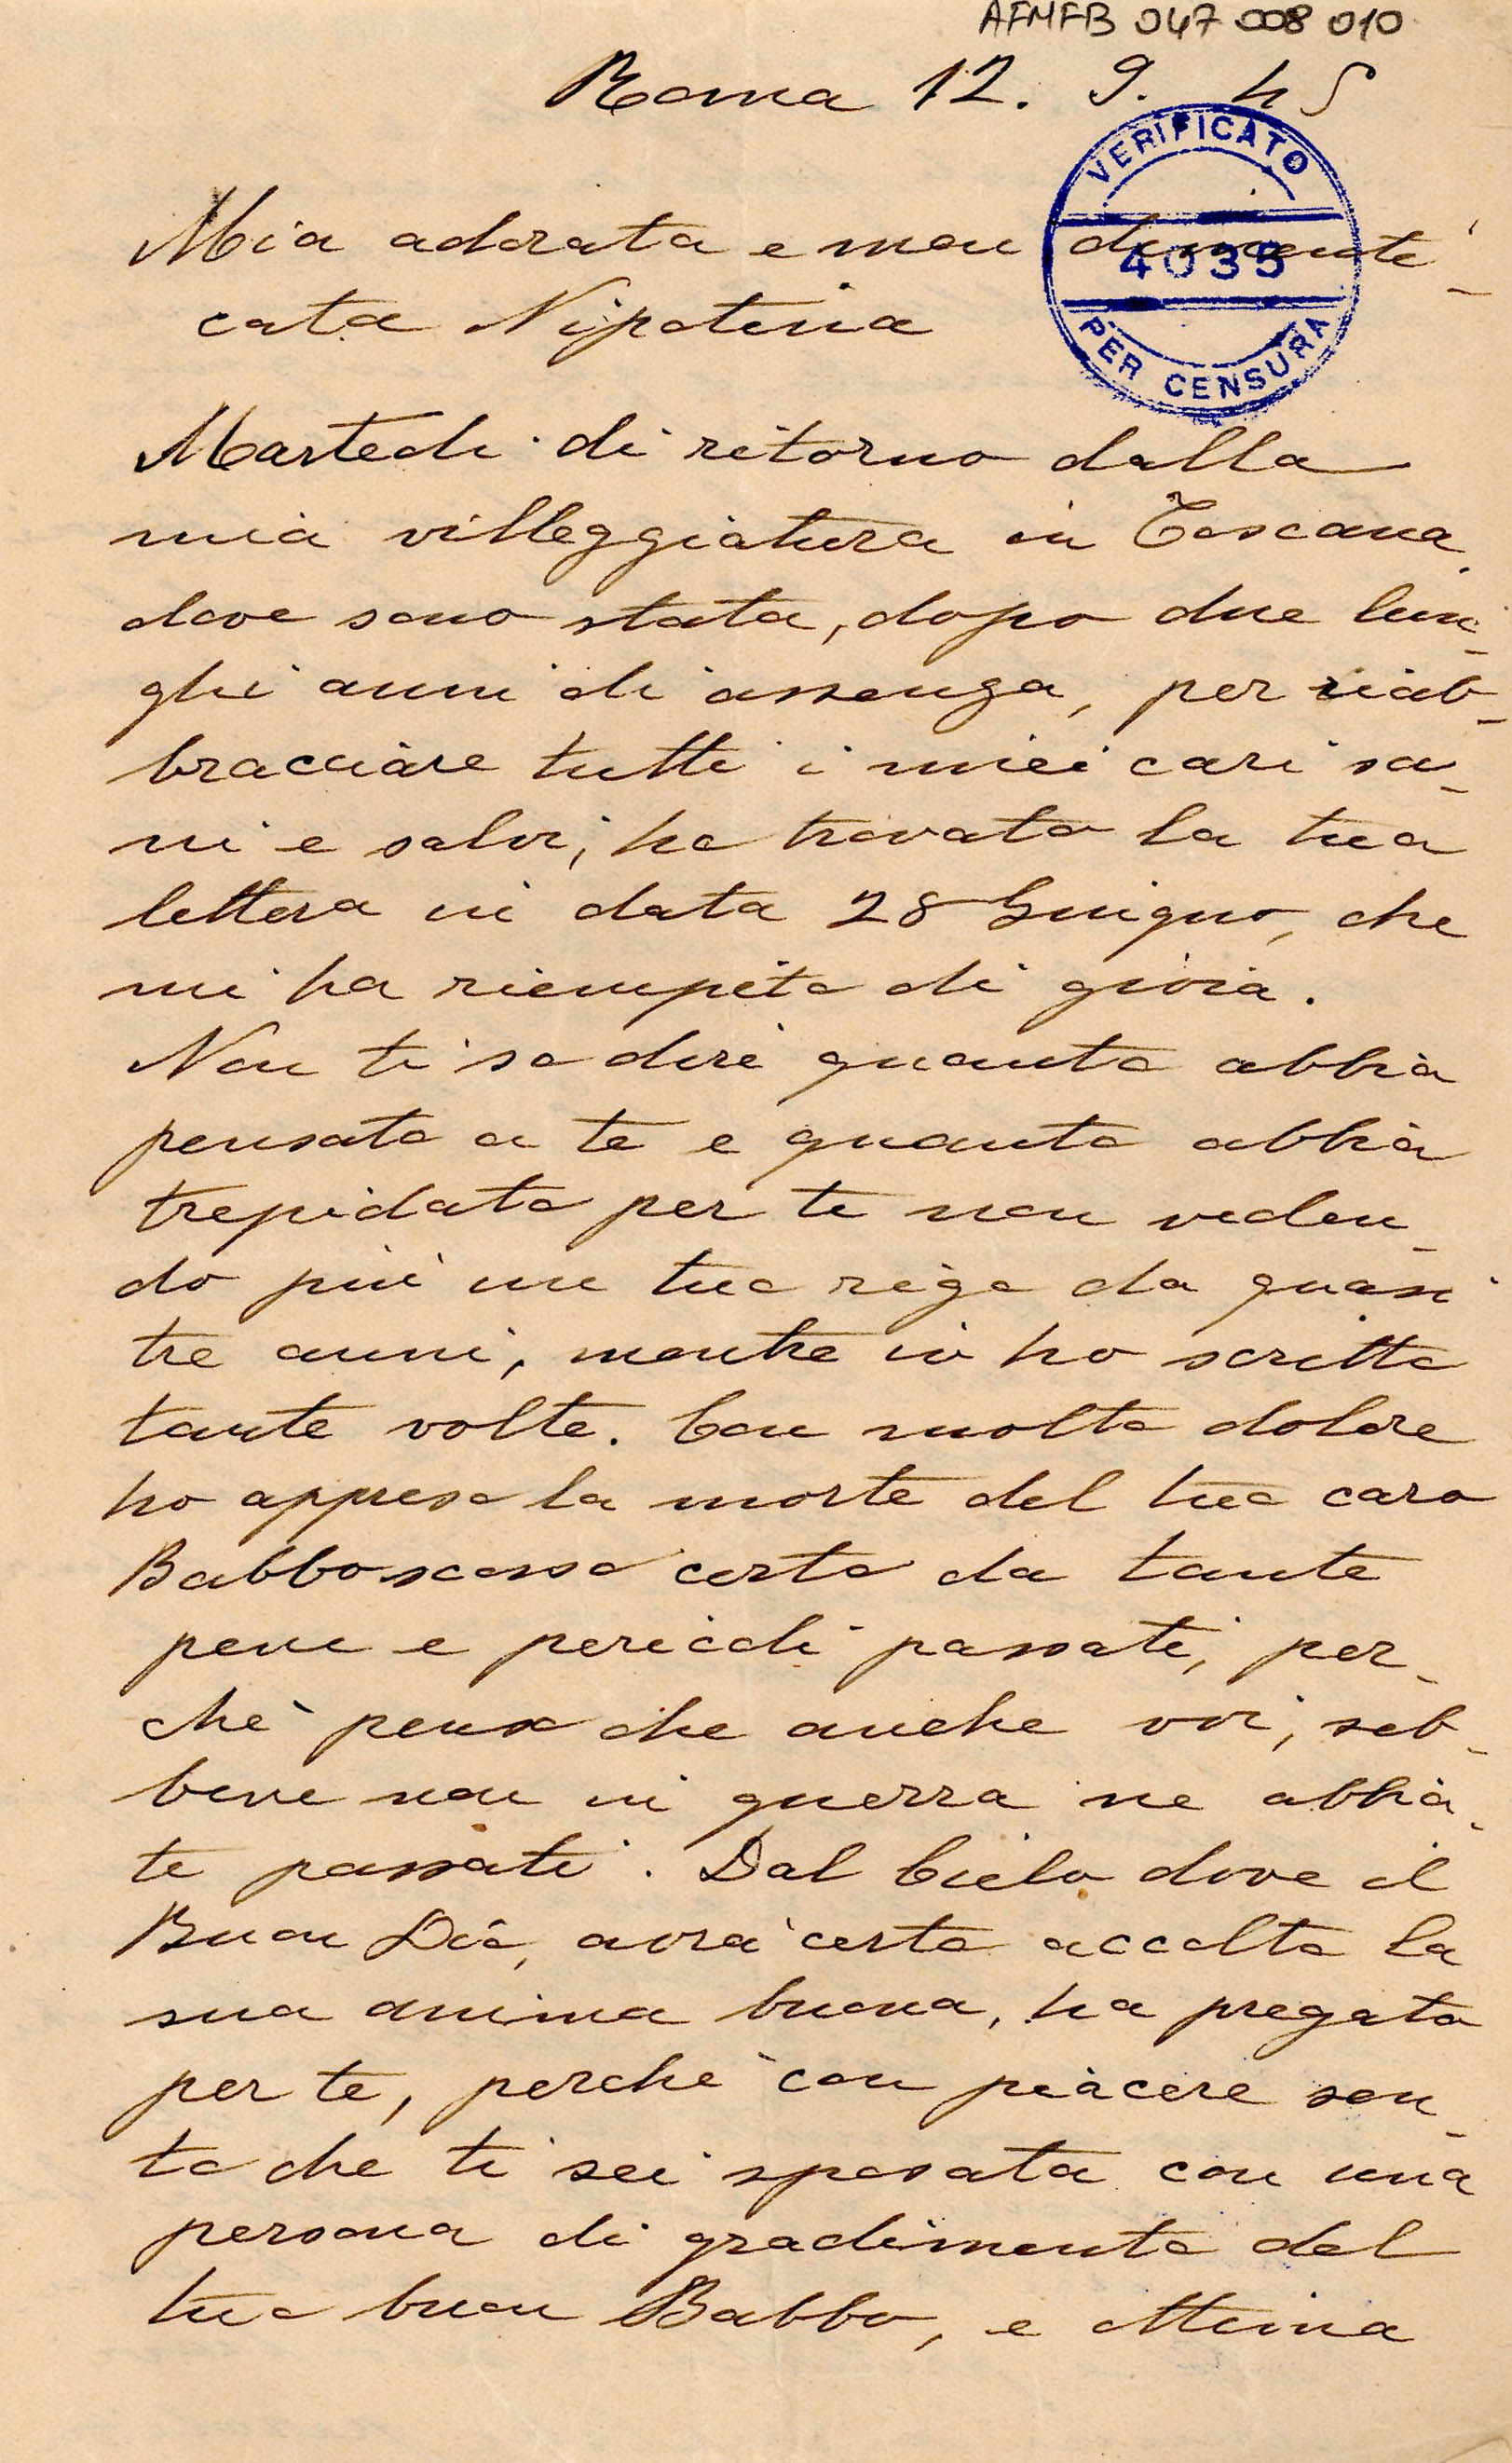 AFMFB 047 008 010
Roma 12. 9. 45
VERIFICATO
4035
PER CENSURA
Mia adorata e non dimenti-
cata Nipotina
Martedi di ritorno dalla
mia villeggiatura in Toscana,
dove sono stata, dopo due lun-
ghi anni di assenza, per riab-
bracciare tutti i miei cari sa-
ni e salvi, ho trovato la tua
lettera in data 28 Giugno, che
mi ha riempito di gioia.
Non ti so dire quanto abbia
pensato a te e quanto abbia
trepidato per te non veden-
do più un tuo rigo da quasi
tre anni, mentre io ho scritto
tante volte. Con molto dolore
ho appreso la morte del tuo caro
Babbo scosso certo da tante
pene e pericoli passati, per-
chè penso che anche voi, seb-
bene non in guerra ne abbia-
te passati. Dal Cielo dove il
Buon Dio, avrà certo accolto la
sua anima buona, ha pregato
per te, perchè con piacere sen-
to che ti sei sposata con una
persona di gradimento del
tuo buon Babbo, e ottima